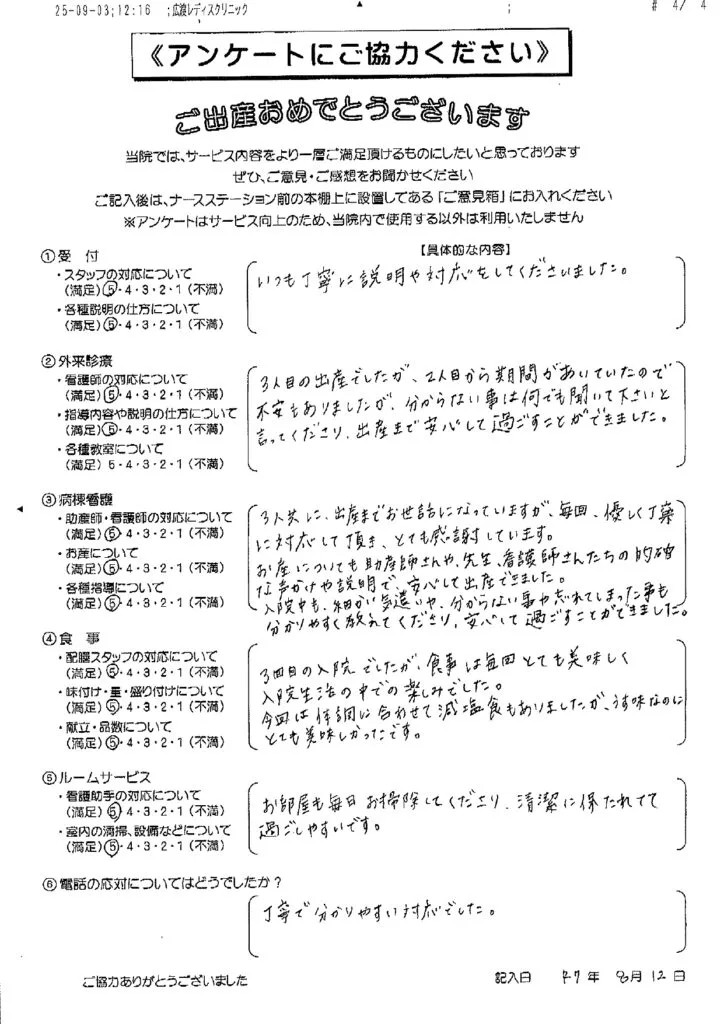 25-09-03;12:16 ;広瀬レディスクリニック ; # 4/ 4
《アンケートにご協力ください》
ご出産おめでとうございます
当院では、サービス内容をより一層ご満足頂けるものにしたいと思っております
ぜひ、ご意見・ご感想をお聞かせください
ご記入後は、ナースステーション前の本棚上に設置してある「ご意見箱」にお入れください
※アンケートはサービス向上のため、当院内で使用する以外は利用いたしません
①受 付
【具体的な内容】
・スタッフの対応について
(満足)⑤・4・3・2・1(不満)
・各種説明の仕方について
(満足)⑤・4・3・2・1(不満)
いつも丁寧に説明や対応をしてくださいました。
②外来診療
・看護師の対応について
(満足)⑤・4・3・2・1(不満)
・指導内容や説明の仕方について
(満足)⑤・4・3・2・1(不満)
・各種教室について
(満足)5・4・3・2・1(不満)
3人目の出産でしたが、2人目から期間があいていたので
不安もありましたが、分からない事は何でも聞いて下さいと
言ってくださり、出産まで安心して過ごすことができました。
③病棟看護
・助産師・看護師の対応について
(満足)⑤・4・3・2・1(不満)
・お産について
(満足)⑤・4・3・2・1(不満)
・各種指導について
(満足)⑤・4・3・2・1(不満)
3人共に、出産までお世話になっていますが、毎回、優しく丁寧
に対応して頂き、とても感謝しています。
お産についても助産師さんや、先生、看護師さんたちの的確
な声かけや説明で、安心して出産できました。
入院中も、細かい気遣いや、分からない事や忘れてしまった事も
分かりやすく教えてくださり、安心して過ごすことができました。
④食 事
・配膳スタッフの対応について
(満足)⑤・4・3・2・1(不満)
・味付け・量・盛り付けについて
(満足)⑤・4・3・2・1(不満)
・献立・品数について
(満足)⑤・4・3・2・1(不満)
3回目の入院でしたが、食事は毎回とても美味しく
入院生活の中での楽しみでした。
今回は体調に合わせて減塩食もありましたが、うす味なのに
とても美味しかったです。
⑤ルームサービス
・看護助手の対応について
(満足)⑤・4・3・2・1(不満)
・室内の清掃、設備などについて
(満足)⑤・4・3・2・1(不満)
お部屋も毎日お掃除してくださり、清潔に保たれてて
過ごしやすいです。
⑥電話の応対についてはどうでしたか？
丁寧で分かりやすい対応でした。
ご協力ありがとうございました
記入日 R7年 8月12日